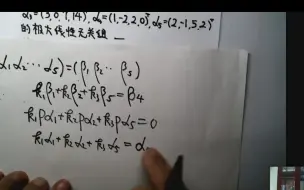 α₃=(3,0,7,14), α₄=(1,-2,2,0)ᵀ, α₅=(2,-1,5,2)ᵀ
的极大线性无关组
α₁α₂⋯α₅)=(β₁β₂⋯β₅)
k₁β₁+k₂β₂+k₃β₅=β₄
k₁pα₁+k₂pα₂+k₃pα₅=0
k₁α₁+k₂α₂+k₃α₅=α